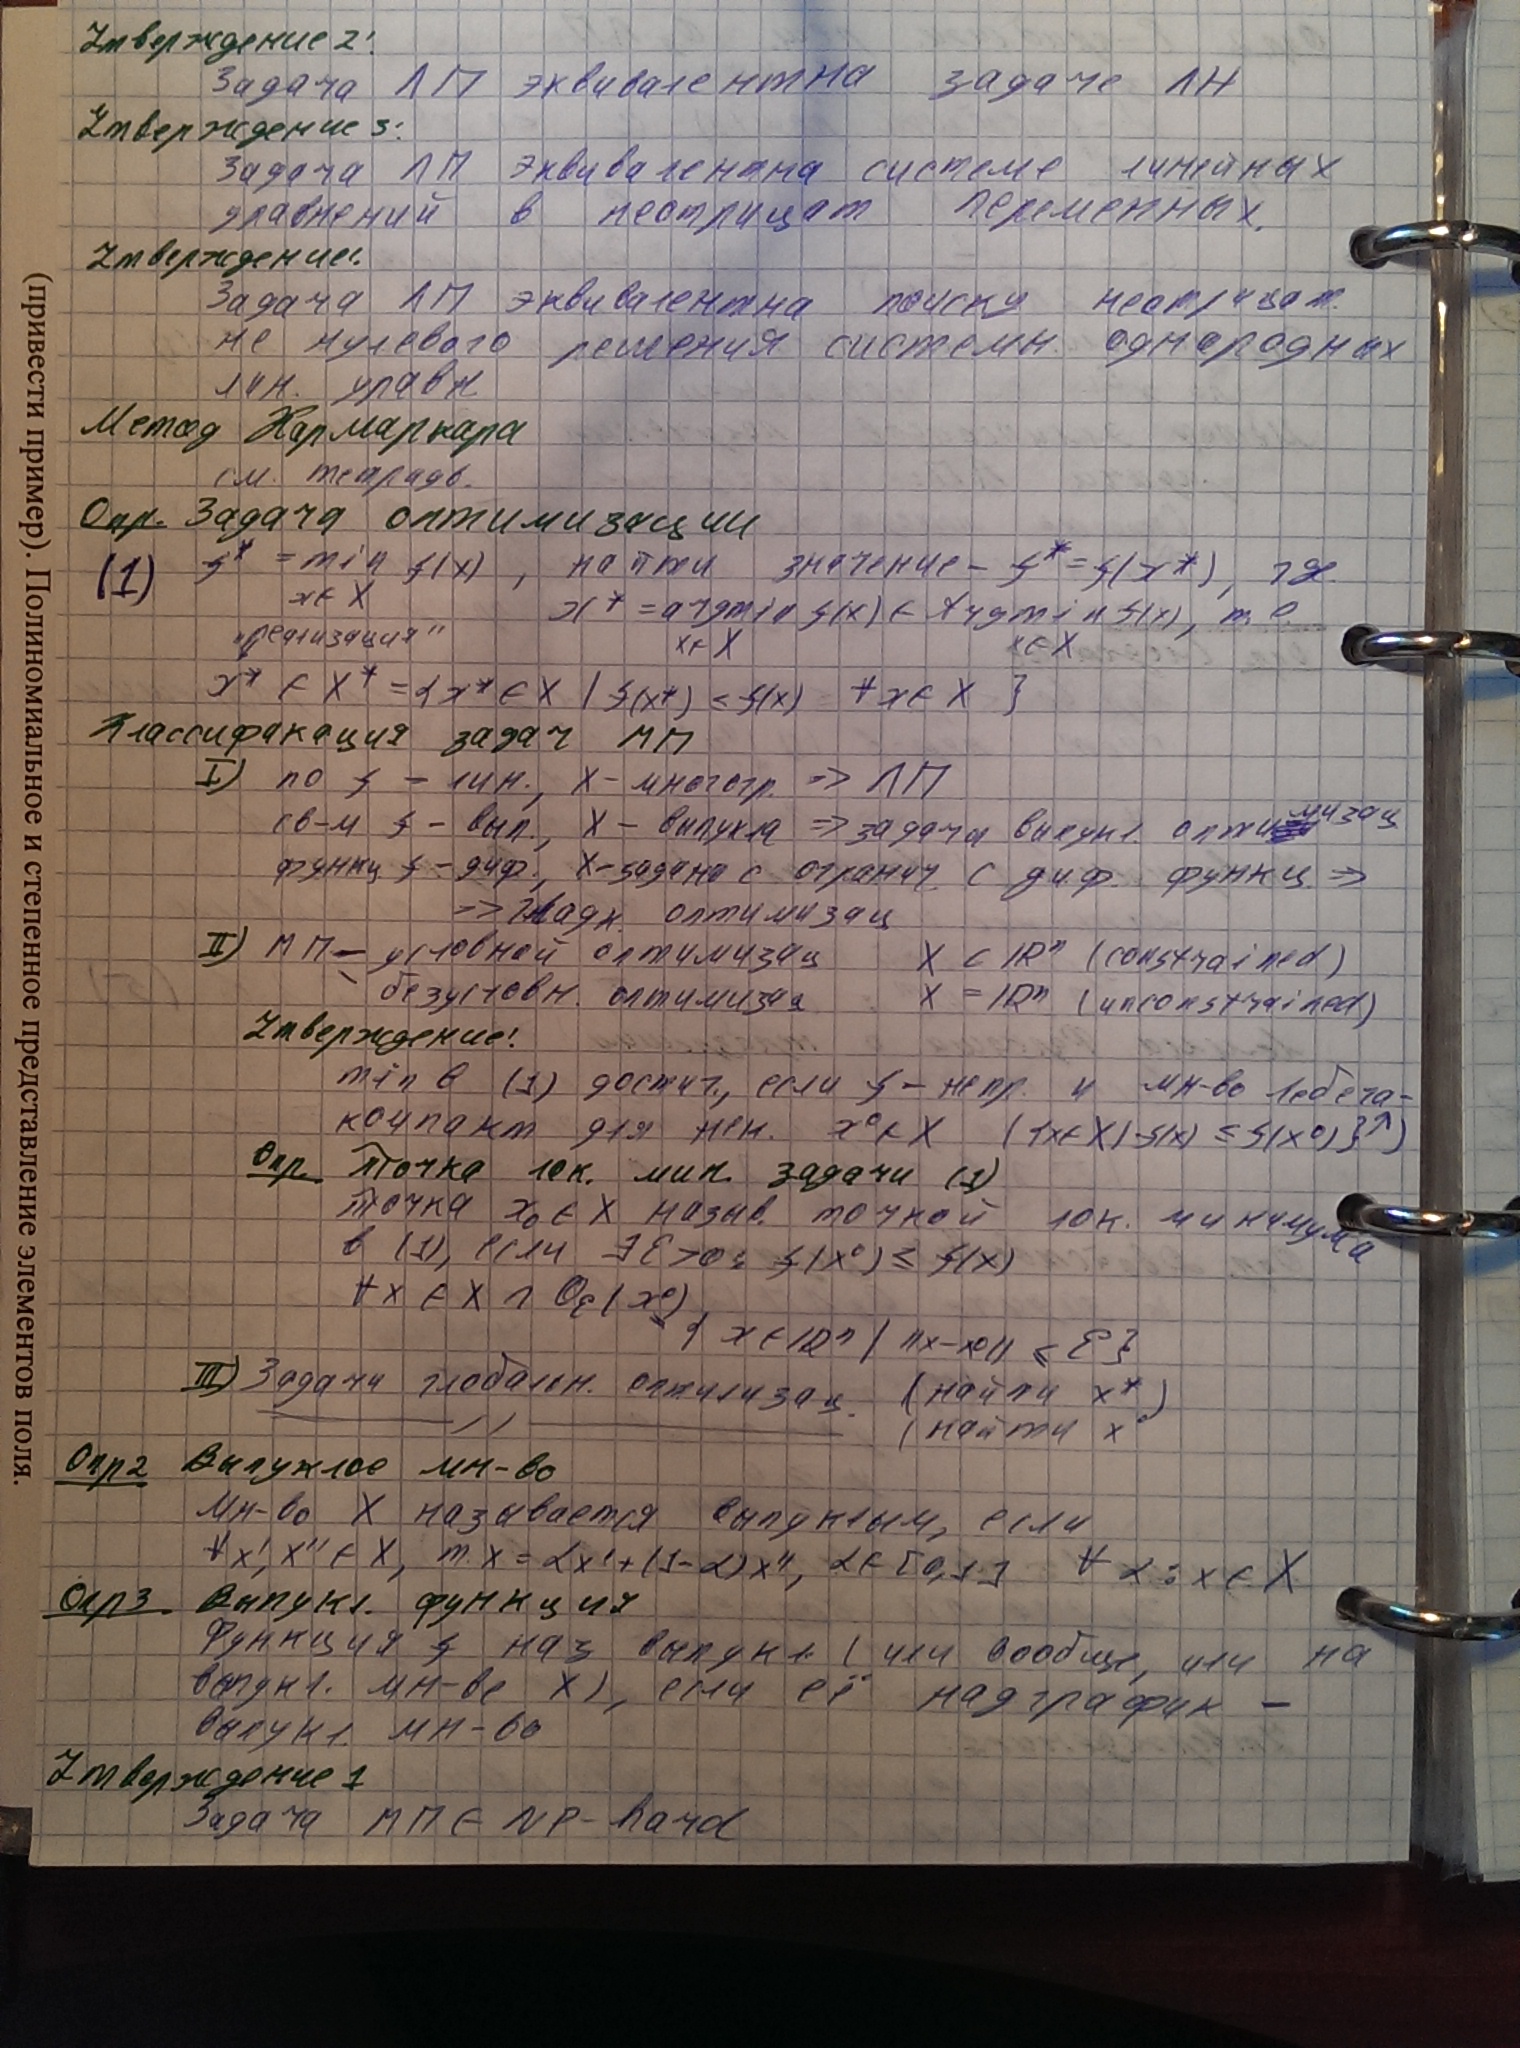 Утверждение 2:
Задача ЛП эквивалентна задаче ЛН
Утверждение 3:
Задача ЛП эквивалентна системе линейных
уравнений в неотрицат переменных.
Утверждение:
Задача ЛП эквивалентна поиску неотрицат.
не нулевого решения системы однородных
лин. уравн
Метод Кармаркара
см. тетрадь.
Опр. Задача оптимизации
(1) f* = min f(x), найти значение - f* = f(x*), где
x∈X x* = argmin f(x) ∈ Argmin f(x), т.о.
„реализация" x∈X x∈X
x* ∈ X* = {x* ∈ X | f(x*) ≤ f(x) ∀x ∈ X }
Классификация задач МП
I) по f - лин., X - многогр. => ЛП
св-м f - вып., X - выпукла => задача выпукл. оптимизац
функц f - диф., X - задано с огранич. с диф. функц =>
=> гладк. оптимизац
II) МП - условной оптимизац X ⊂ ℝⁿ (constrained)
- безусловн. оптимизац X = ℝⁿ (unconstrained)
Утверждение:
min в (1) достиг., если f - непр. и мн-во Лебега-
компакт для нек. x⁰∈X ({x∈X | f(x) ≤ f(x⁰)}↑)
Опр. Точка лок. мин. задачи (1)
Точка x₀ ∈ X назыв. точкой лок. минимума
в (1), если ∃ε>0: f(x⁰) ≤ f(x)
∀x ∈ X ∩ O_ε(x⁰),
{ x ∈ ℝⁿ | ||x-x⁰|| ≤ ε}
III) Задачи глобальн. оптимизац. (найти x*)
—— // —— (найти x⁰
Опр2 Выпуклое мн-во
Мн-во X называется выпуклым, если
∀x', x'' ∈ X, т. x = αx' + (1-α)x'', α∈[0,1] ∀ α : x ∈ X
Опр3 Выпукл. функция
Функция f наз выпукл. (или вообще, или на
выпукл. мн-ве X), если её надграфик -
выпукл. мн-во
Утверждение 1
Задача МП ∈ NP-hard
(привести пример). Полиномиальное и степенное представление элементов поля.